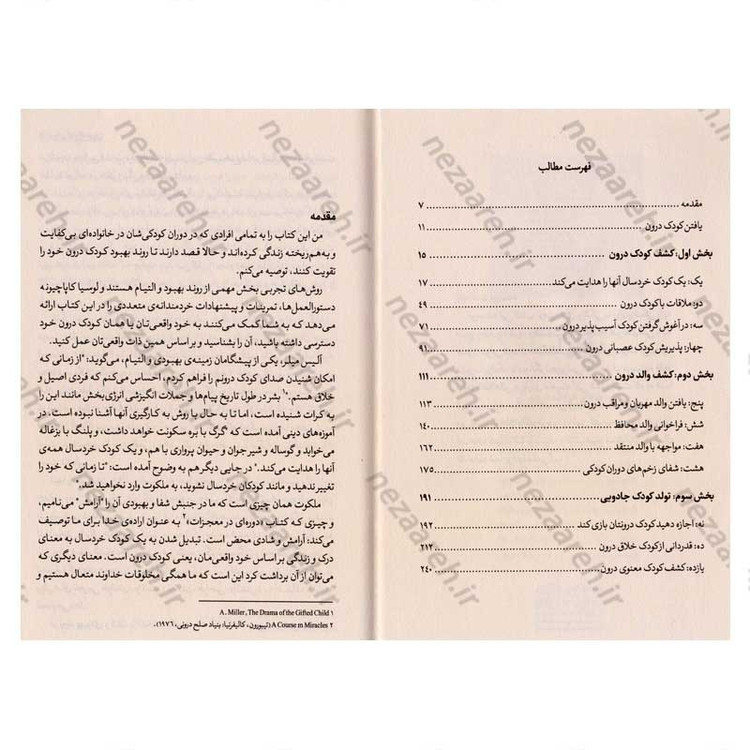 فهرست مطالب
مقدمه ........ ۷
یافتن کودک درون ........ ۱۱
بخش اول: کشف کودک درون ........ ۱۵
یک: یک کودک خردسال آنها را هدایت می‌کند ........ ۱۷
دو: ملاقات با کودک درون ........ ۴۹
سه: در آغوش گرفتن کودک آسیب پذیر درون ........ ۷۱
چهار: پذیرش کودک عصبانی درون ........ ۹۱
بخش دوم: کشف والد درون ........ ۱۱۱
پنج: یافتن والد مهربان و مراقب درون ........ ۱۱۳
شش: فراخوانی والد محافظ ........ ۱۴۰
هفت: مواجهه با والد منتقد ........ ۱۶۲
هشت: شفای زخم‌های دوران کودکی ........ ۱۷۵
بخش سوم: تولد کودک جادویی ........ ۱۹۱
نه: اجازه دهید کودک درونتان بازی کند ........ ۱۹۲
ده: قدردانی از کودک خلاق درون ........ ۲۱۲
یازده: کشف کودک معنوی درون ........ ۲۴۰
مقدمه
من این کتاب را به تمامی افرادی که در دوران کودکی‌شان در خانواده‌ای بی‌کفایت
و به‌هم‌ریخته زندگی کرده‌اند و حالا قصد دارند تا روند بهبود کودک درون خود را
تقویت کنند، توصیه می‌کنم.
روش‌های تجربی بخش مهمی از روند بهبود و التیام هستند و لوسیا کاپاچیونه
دستورالعمل‌ها، تمرینات و پیشنهادات خردمندانه‌ی متعددی را در این کتاب ارائه
می‌دهد که به شما کمک می‌کنند به خود واقعی‌تان یا همان کودک درون خود
دسترسی داشته باشید، آن را بشناسید و بر اساس همین ذات واقعی‌تان عمل کنید.
آلیس میلر، یکی از پیشگامان زمینه‌ی بهبودی و التیام، می‌گوید: "از زمانی که
امکان شنیدن صدای کودک درونم را فراهم کردم، احساس می‌کنم که فردی اصیل و
خلاق هستم."۱ بشر در طول تاریخ پیام‌ها و جملات انگیزشی انرژی‌بخش مانند این را
به کرات شنیده است، اما تا به حال با روش به کارگیری آنها آشنا نبوده است. در
آموزه‌های دینی آمده است که "گرگ با بره سکونت خواهد داشت، و پلنگ با بزغاله
می‌خوابد و گوساله و شیر جوان و حیوان پرواری با هم، و یک کودک خردسال همه‌ی
آنها را هدایت می‌کند." در جایی دیگر هم به وضوح آمده است: "تا زمانی که خود را
تغییر ندهید و مانند کودکان خردسال نشوید، به ملکوت وارد نخواهید شد."
ملکوت همان چیزی است که ما در جنبش شفا و بهبودی آن را "آرامش" می‌نامیم،
و چیزی که کتاب «دوره‌ای در معجزات»۲ به عنوان اراده‌ی خدا برای ما توصیف
می‌کند: آرامش و شادی محض است. تبدیل شدن به یک کودک خردسال به معنای
درک و زندگی بر اساس خود واقعی‌مان، یعنی کودک درون است. معنای دیگری که
می‌توان از آن برداشت کرد این است که ما همگی مخلوقات خداوند متعال هستیم و
A. Miller, The Drama of the Gifted Child ۱
A Course m Miracles ۲ (تیبورون، کالیفرنیا: بنیاد صلح درونی، ۱۹۷۶).
nezaareh.ir